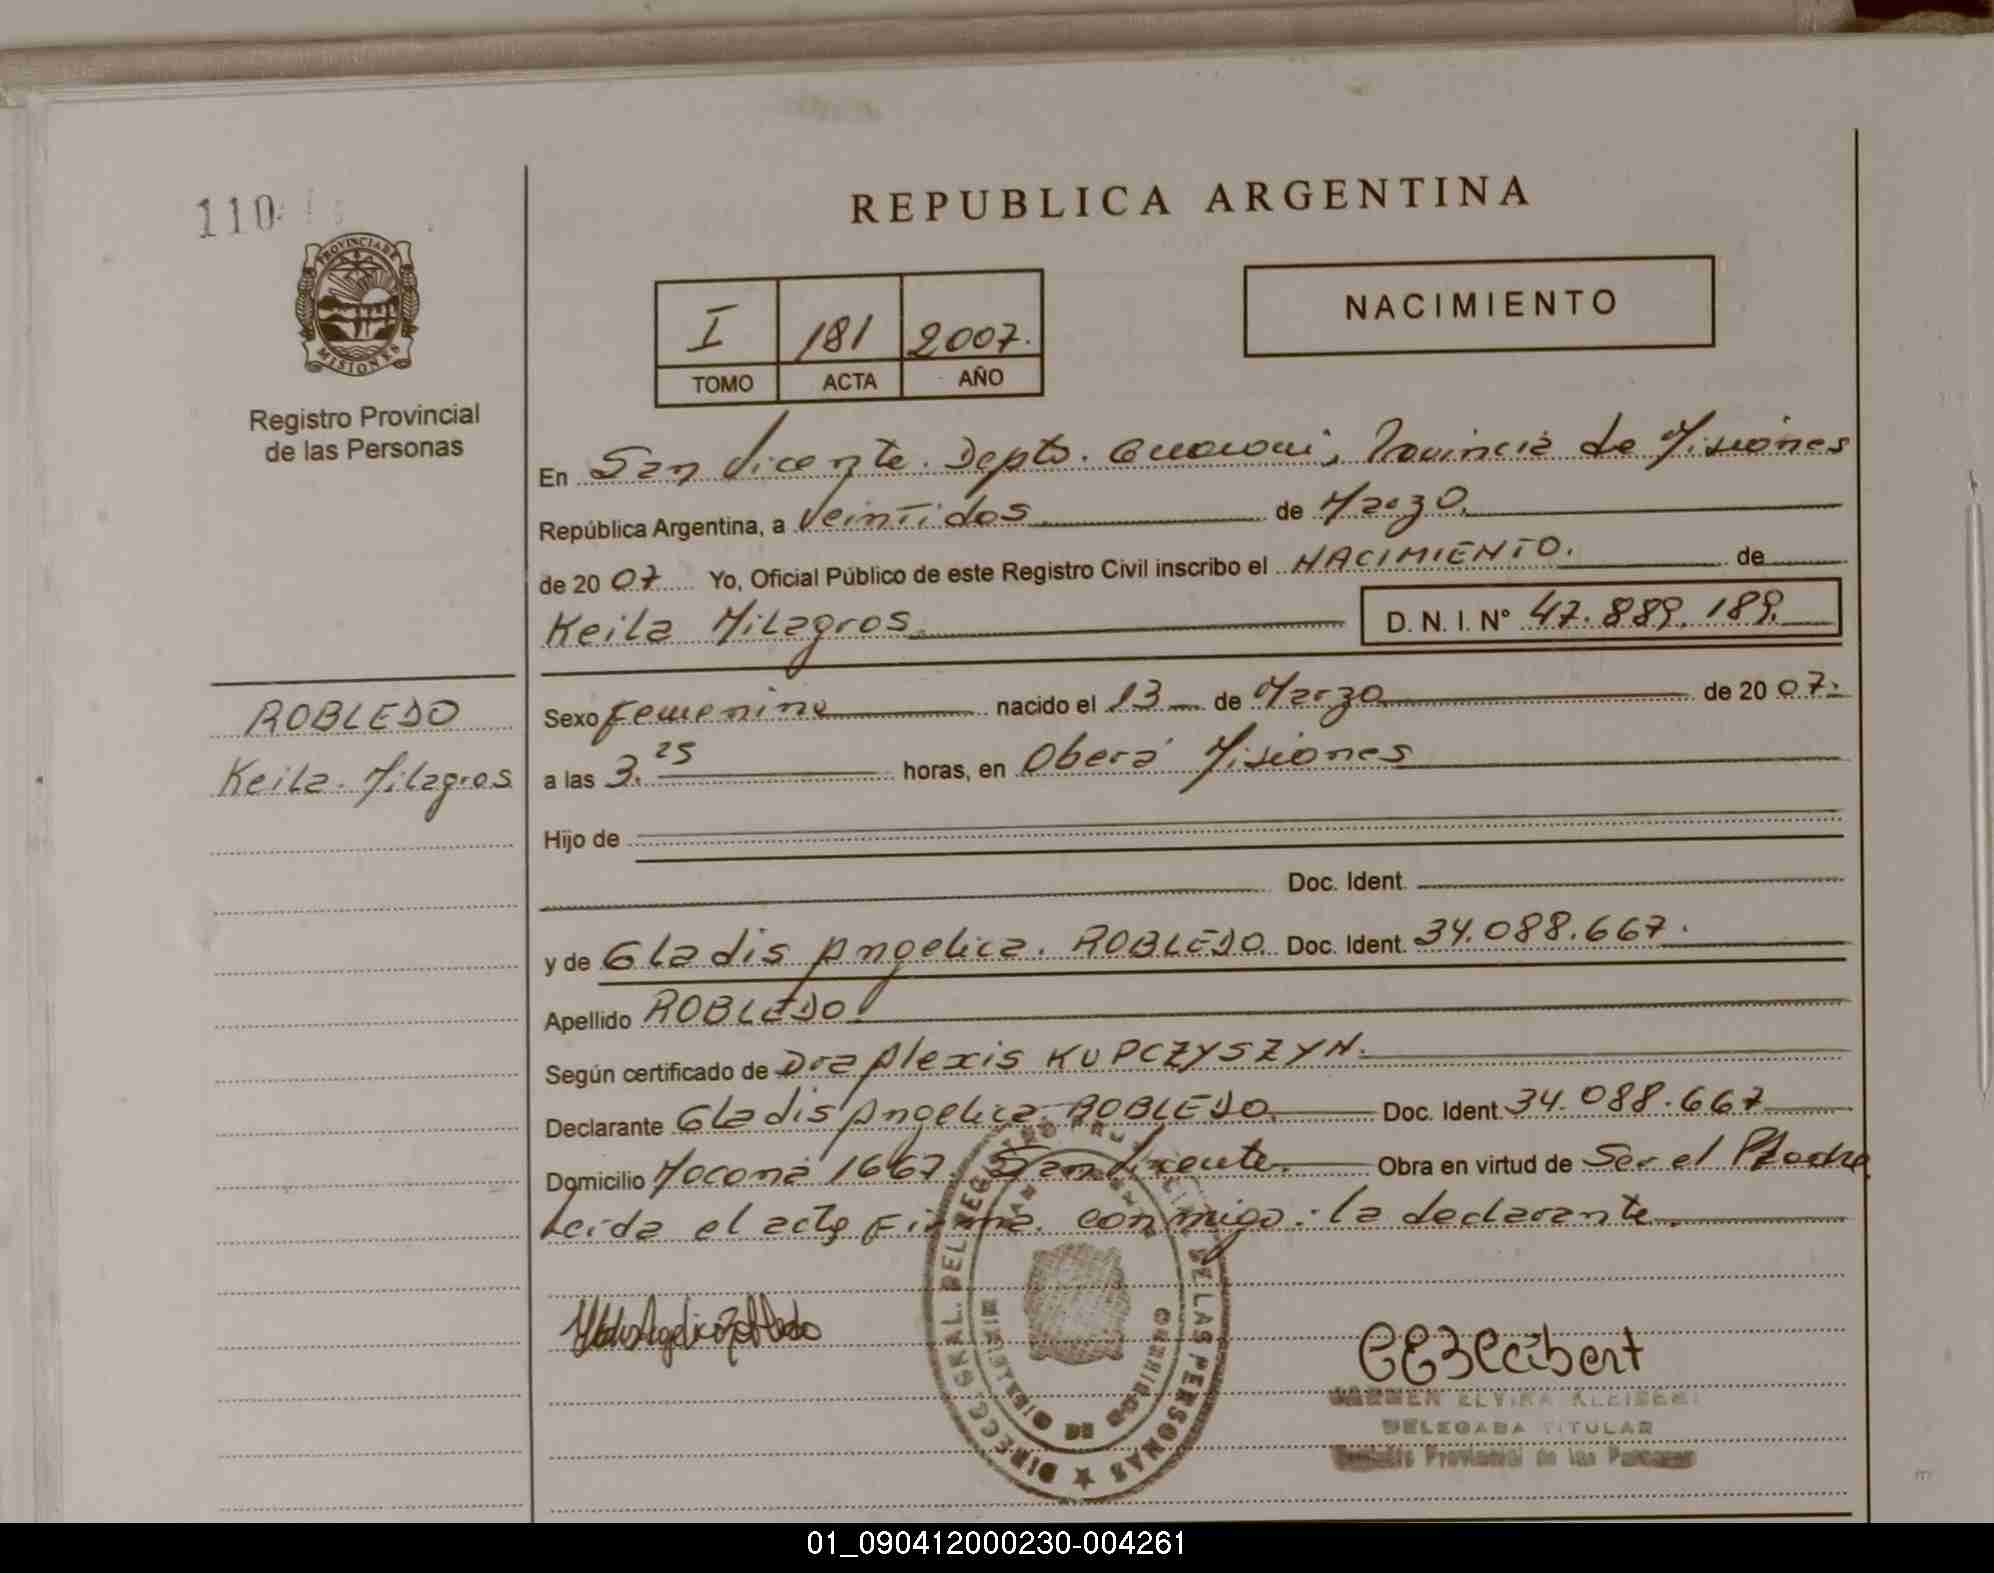 110
PROVINCIA DE
MISIONES
Registro Provincial
de las Personas
ROBLEDO
Keila Milagros
REPUBLICA ARGENTINA
I 181 2007.
TOMO ACTA AÑO
NACIMIENTO
En San Vicente. Depto. Guarani, Provincia de Misiones
República Argentina, a Veintidos de Marzo.
de 20 07 Yo, Oficial Público de este Registro Civil inscribo el NACIMIENTO. de
Keila Milagros D. N. I. Nº 47.889.189.
Sexo Femenino nacido el 13 de Marzo de 20 07.
a las 3.25 horas, en Oberá Misiones
Hijo de
Doc. Ident.
y de Gladis Angelica. ROBLEDO. Doc. Ident. 34.088.667.
Apellido ROBLEDO.
Según certificado de Dra Alexis KUPCZYSZYN.
Declarante Gladis Angelica ROBLEDO. Doc. Ident. 34.088.667
Domicilio Mocona 1667. San Vicente. Obra en virtud de Ser el Madre
Leida el acta Firma conmigo: la declarante.
DIREC. GRAL. DEL REGISTRO DE LAS PERSONAS
DELEGADA TITULAR
Provincial de las Personas
01_090412000230-004261